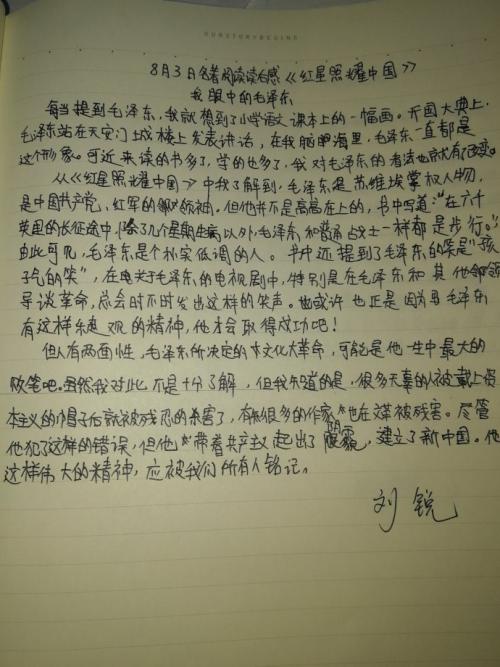 8月3日名著阅读读后感《红星照耀中国》
我眼中的毛泽东
每当提到毛泽东,我就想到了小学语文课本上的一幅画。开国大典上,
毛泽东站在天安门城楼上发表讲话,在我脑海里,毛泽东一直都是
这个形象。可近来读的书多了,学的也多了,我对毛泽东的看法也就有了改变。
从《红星照耀中国》中我了解到,毛泽东是苏维埃掌权人物,
是中国共产党、红军的领袖。但他并不是高高在上的,书中写道:“在六千
英里的长征途中,除了几个星期生病以外,毛泽东和普通战士一样都是步行。”
由此可见,毛泽东是个朴实低调的人。书中还提到了毛泽东的笑是“孩
子气的笑”,在关于毛泽东的电视剧中,特别是在毛泽东和其他领
导谈革命,总会时不时发出这样的笑声。也或许也正是因为毛泽东
有这样乐观的精神,他才会取得成功吧!
但人有两面性,毛泽东所决定的文化大革命,可能是他一生中最大的
败笔吧。虽然我对此不是十分了解,但我知道的是,很多无辜的人被戴上资
本主义的帽子后就被残忍的杀害了,有很多的作家也在文革被残害。尽管
他犯了这样的错误,但他带着共产主义起出了阴霾,建立了新中国。他
这样伟大的精神,应被我们所有人铭记。
刘锐